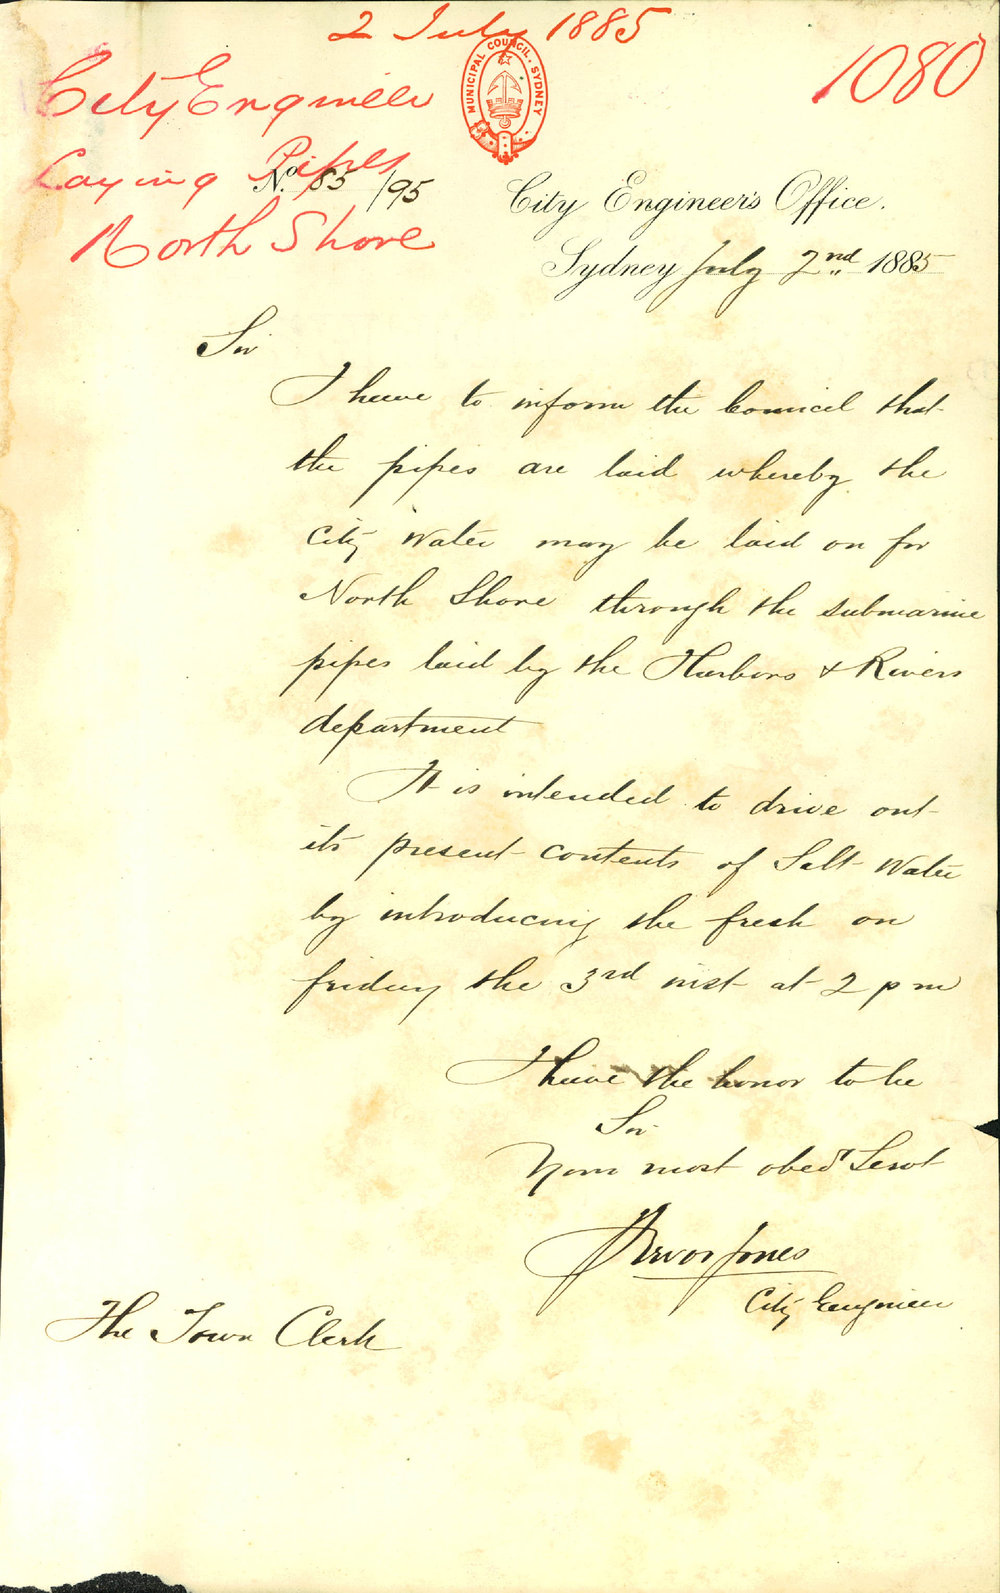 2 July 1885
1080
MUNICIPAL COUNCIL. SYDNEY
City Engineer
Laying Pipes
North Shore
No. 85/95
City Engineer's Office.
Sydney July 2nd 1885
Sir
I have to inform the Council that
the pipes are laid whereby the
City Water may be laid on for
North Shore through the submarine
pipes laid by the Harbors & Rivers
department
It is intended to drive out
its present contents of Salt Water
by introducing the fresh on
friday the 3rd inst at 2 pm
I have the honor to be
Sir
Your most obedt Servt
Trevor Jones
City Engineer
The Town Clerk